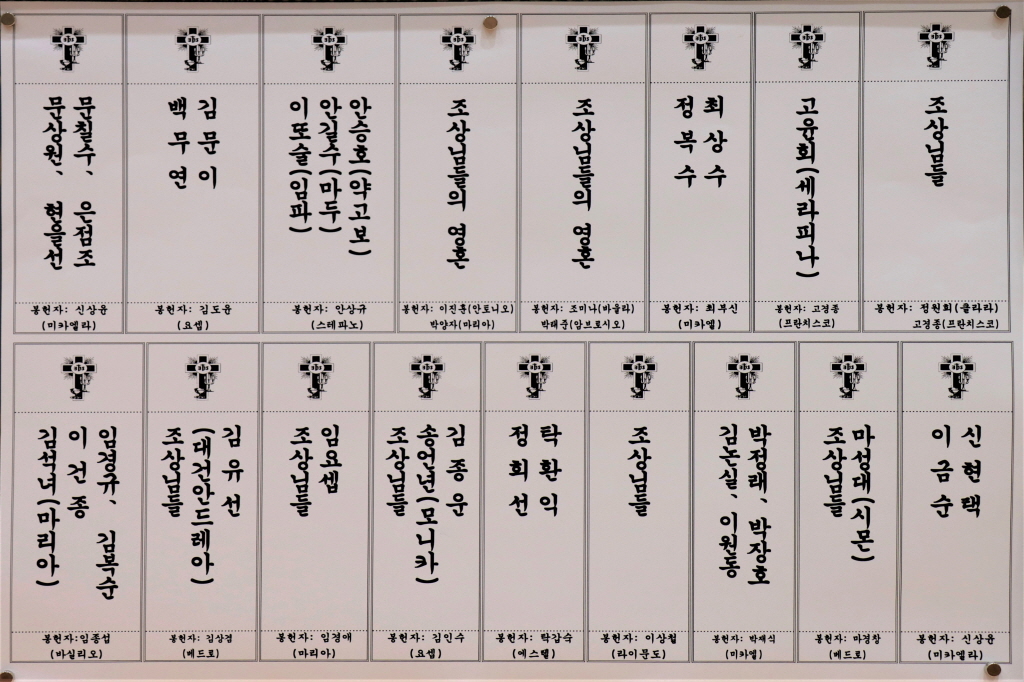 문칠수、 은점조
문상원、 현을선
봉헌자: 신상윤
(미카엘라)
김문이
백무연
봉헌자: 김도윤
(요셉)
안승호(야고보)
안길수(마두)
이또술(임파)
봉헌자: 안상규
(스테파노)
조상님들의 영혼
봉헌자: 이진훈(안토니오)
박양자(마리아)
조상님들의 영혼
봉헌자: 조미나(바울라)
박태준(암브로시오)
최상수
정복수
봉헌자: 최부신
(미카엘)
고윤회(세라피나)
봉헌자: 고경종
(프란치스코)
조상님들
봉헌자: 정원회(클라라)
고경종(프란치스코)
임경규、 김복순
이건종
김석녀(마리아)
봉헌자:임종섭
(바실리오)
김유선
(대건안드레아)
조상님들
봉헌자: 김상겸
(베드로)
임요셉
조상님들
봉헌자: 임경애
(마리아)
김종운
송언년(모니카)
조상님들
봉헌자: 김인수
(요셉)
탁환익
정희선
봉헌자: 탁갑숙
(에스텔)
조상님들
봉헌자: 이상협
(라이문도)
박정래、 박장호
김논실、 이원동
봉헌자: 박재식
(미카엘)
마성대(시몬)
조상님들
봉헌자: 마경창
(베드로)
신현택
이금순
봉헌자: 신상윤
(미카엘라)